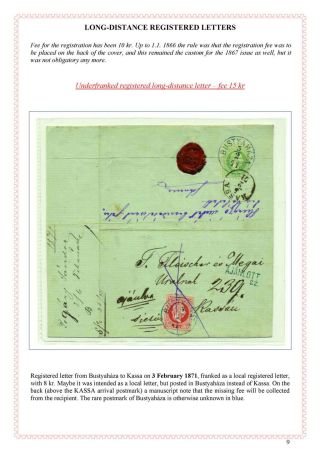 LONG-DISTANCE REGISTERED LETTERS
Fee for the registration has been 10 kr. Up to 1.1. 1866 the rule was that the registration fee was to
be placed on the back of the cover, and this remained the custom for the 1867 issue as well, but it
was not obligatory any more.
Underfranked registered long-distance letter – fee 15 kr
BUSTYAHÁZ
AJÁNLOTT
Kassau
Registered letter from Bustyaháza to Kassa on 3 February 1871, franked as a local registered letter,
with 8 kr. Maybe it was intended as a local letter, but posted in Bustyaháza instead of Kassa. On the
back (above the KASSA arrival postmark) a manuscript note that the missing fee will be collected
from the recipient. The rare postmark of Bustyaháza is otherwise unknown in blue.
9